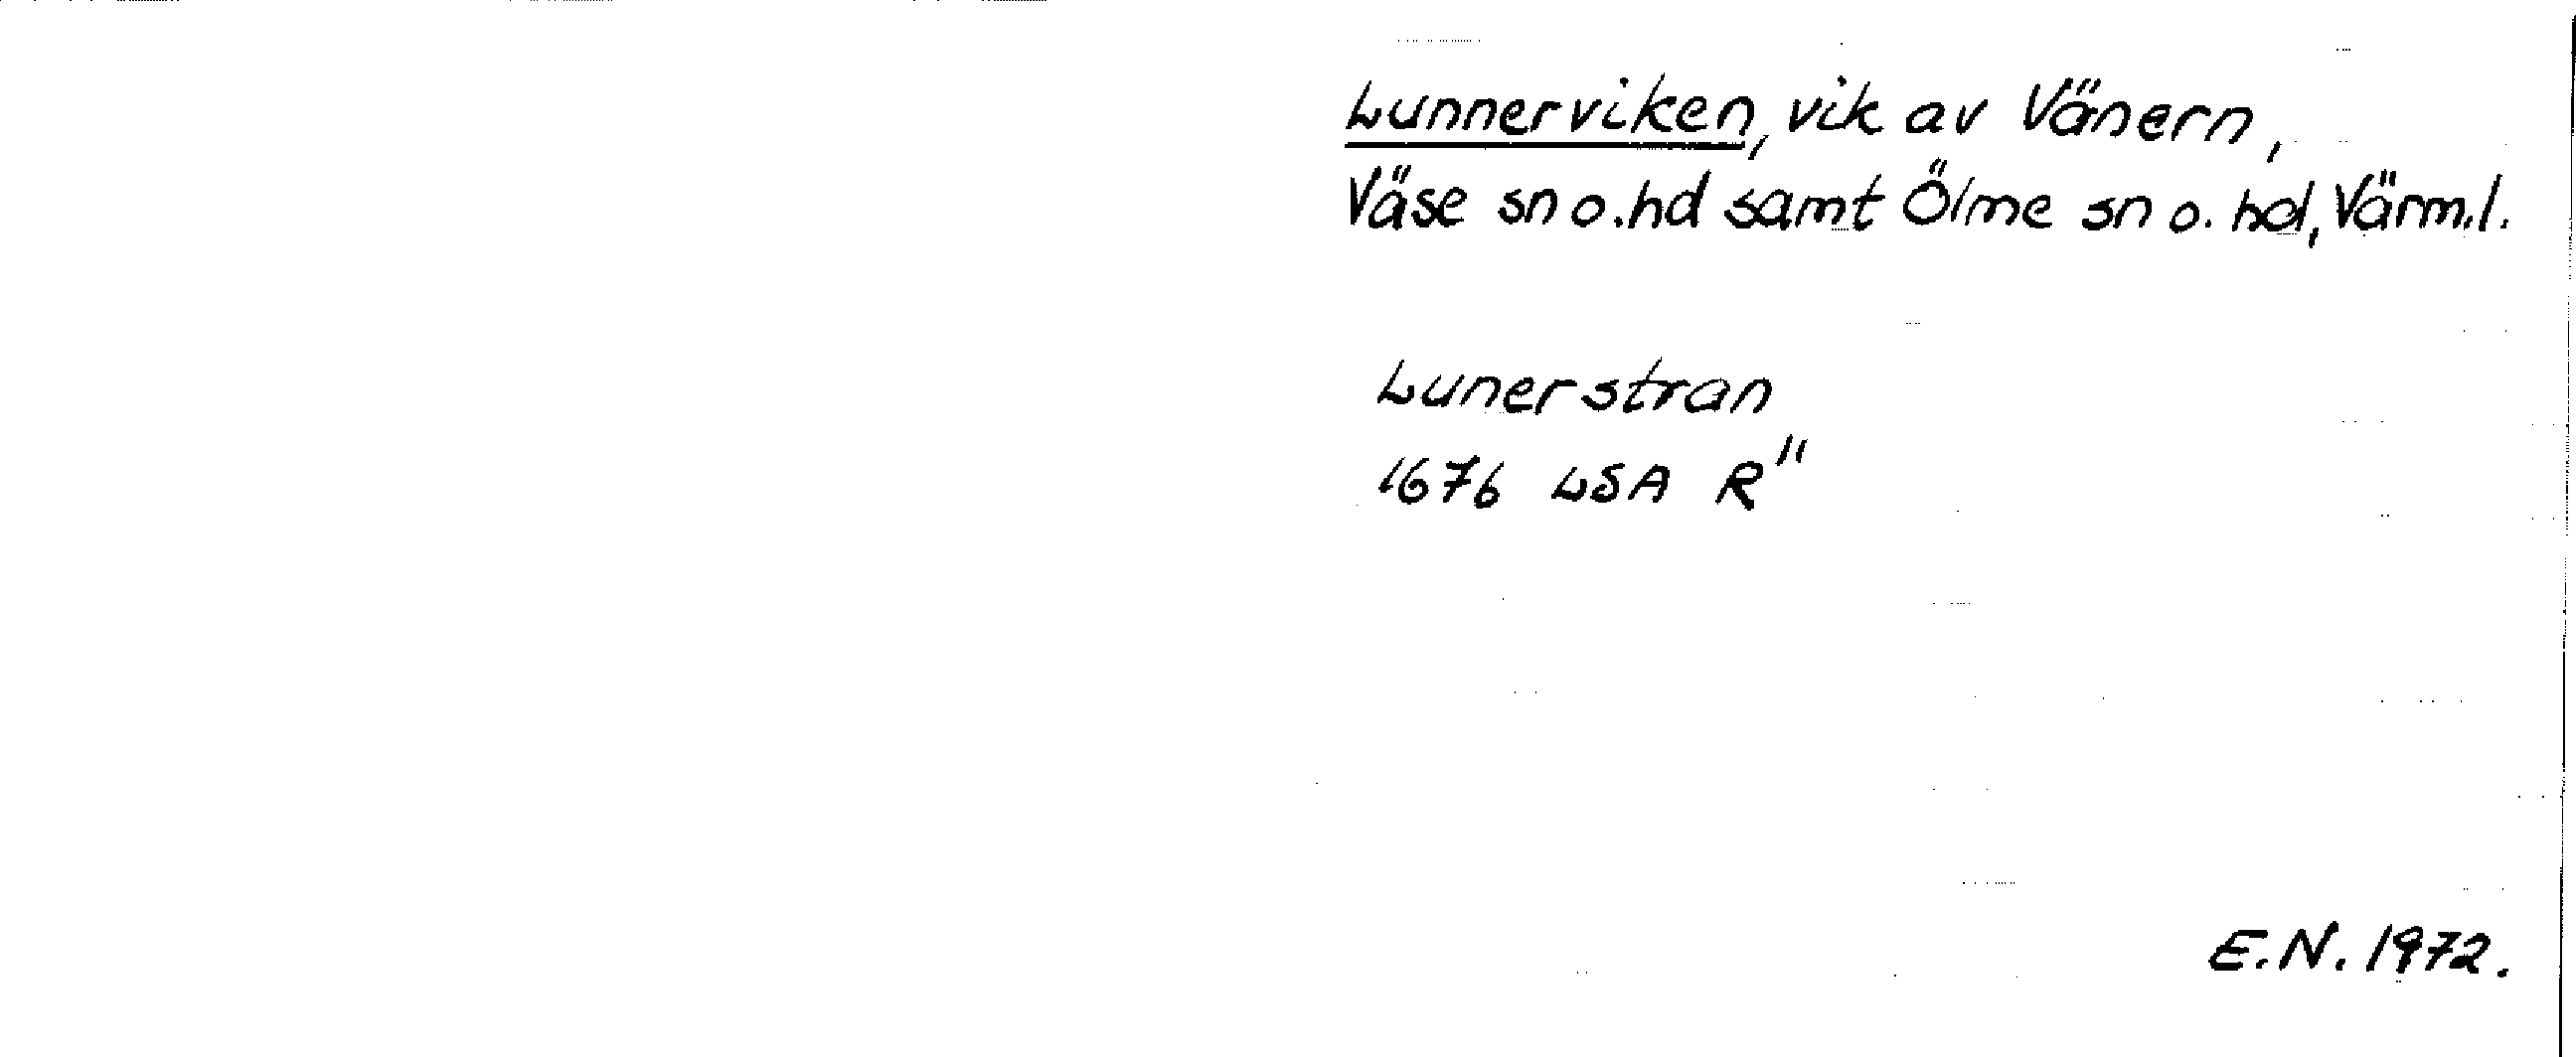 Lunnerviken, vik av Vänern,
Väse sn o. hd samt Ölme sn o. hd, Värml.
Lunerstran
1676 LSA R"
E.N. 1972.